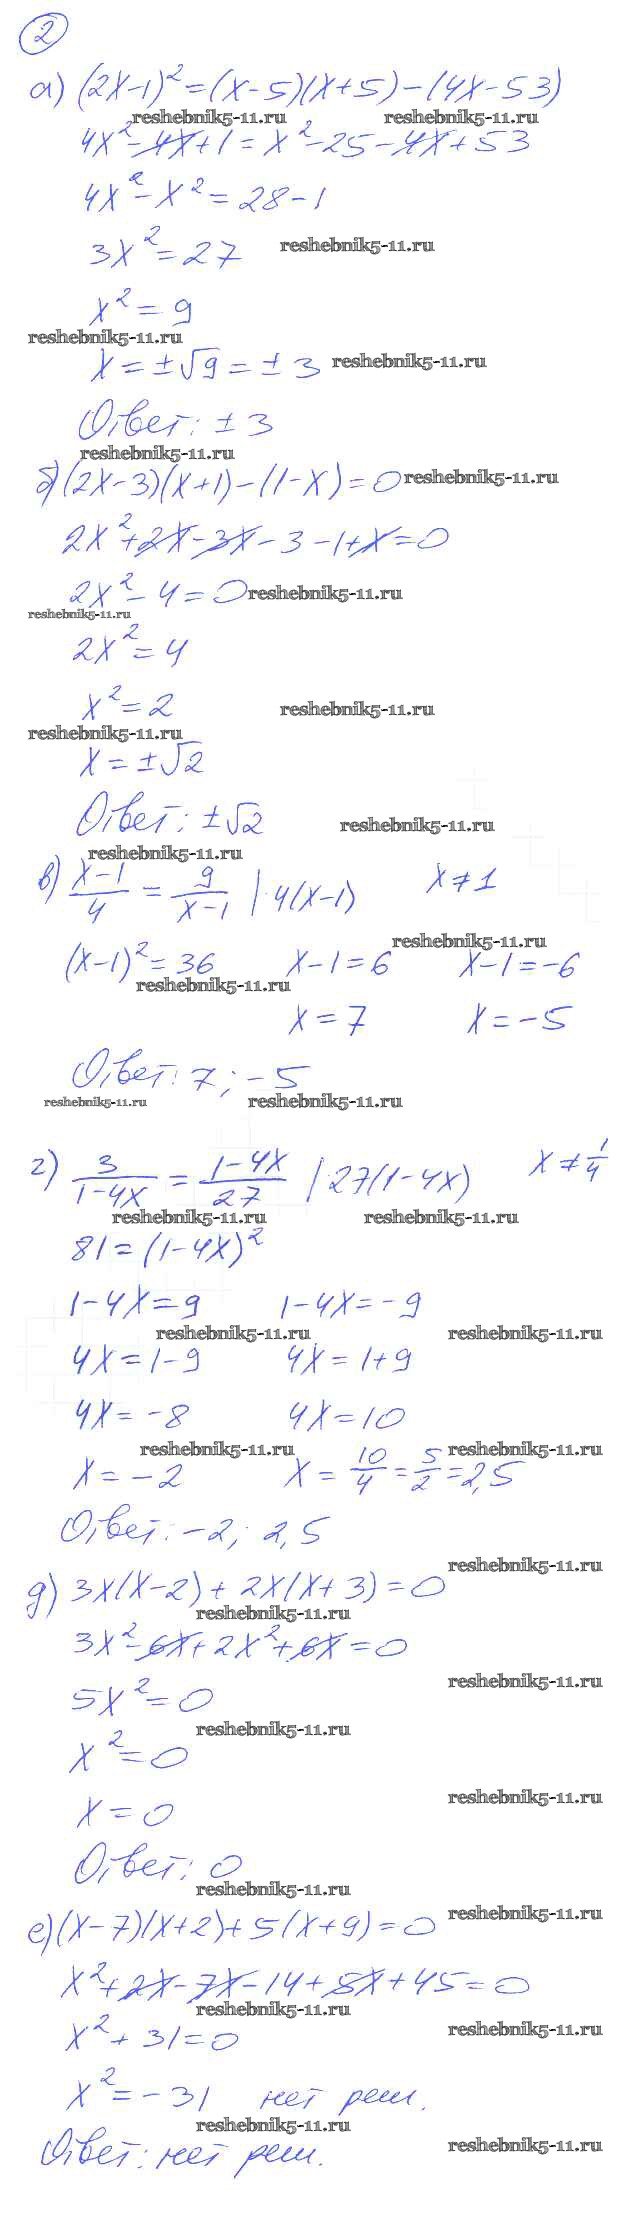 2
а) (2x-1)² = (x-5)(x+5) - (4x-53)
reshebnik5-11.ru reshebnik5-11.ru
4x² - 4x + 1 = x² - 25 - 4x + 53
4x² - x² = 28 - 1
3x² = 27 reshebnik5-11.ru
x² = 9
reshebnik5-11.ru
x = ±√9 = ±3 reshebnik5-11.ru
Ответ: ±3
reshebnik5-11.ru
б) (2x-3)(x+1) - (1-x) = 0 reshebnik5-11.ru
2x² + 2x - 3x - 3 - 1 + x = 0
2x² - 4 = 0 reshebnik5-11.ru
reshebnik5-11.ru
2x² = 4
x² = 2 reshebnik5-11.ru
reshebnik5-11.ru
x = ±√2
Ответ: ±√2 reshebnik5-11.ru
reshebnik5-11.ru
в) (x-1)/4 = 9/(x-1) | · 4(x-1) x ≠ 1
reshebnik5-11.ru
(x-1)² = 36 x-1 = 6 x-1 = -6
reshebnik5-11.ru
x = 7 x = -5
Ответ: 7; -5
reshebnik5-11.ru reshebnik5-11.ru
г) 3/(1-4x) = (1-4x)/27 | · 27(1-4x) x ≠ 1/4
reshebnik5-11.ru reshebnik5-11.ru
81 = (1-4x)²
1-4x = 9 1-4x = -9
reshebnik5-11.ru reshebnik5-11.ru
4x = 1-9 4x = 1+9
4x = -8 4x = 10
reshebnik5-11.ru reshebnik5-11.ru
x = -2 x = 10/4 = 5/2 = 2,5
Ответ: -2; 2,5
reshebnik5-11.ru
д) 3x(x-2) + 2x(x+3) = 0
reshebnik5-11.ru
3x² - 6x + 2x² + 6x = 0
reshebnik5-11.ru
5x² = 0
reshebnik5-11.ru
x² = 0
reshebnik5-11.ru
x = 0
Ответ: 0
reshebnik5-11.ru
reshebnik5-11.ru
е) (x-7)(x+2) + 5(x+9) = 0
x² + 2x - 7x - 14 + 5x + 45 = 0
reshebnik5-11.ru
reshebnik5-11.ru
x² + 31 = 0
x² = -31 нет реш.
reshebnik5-11.ru
reshebnik5-11.ru
Ответ: нет реш.